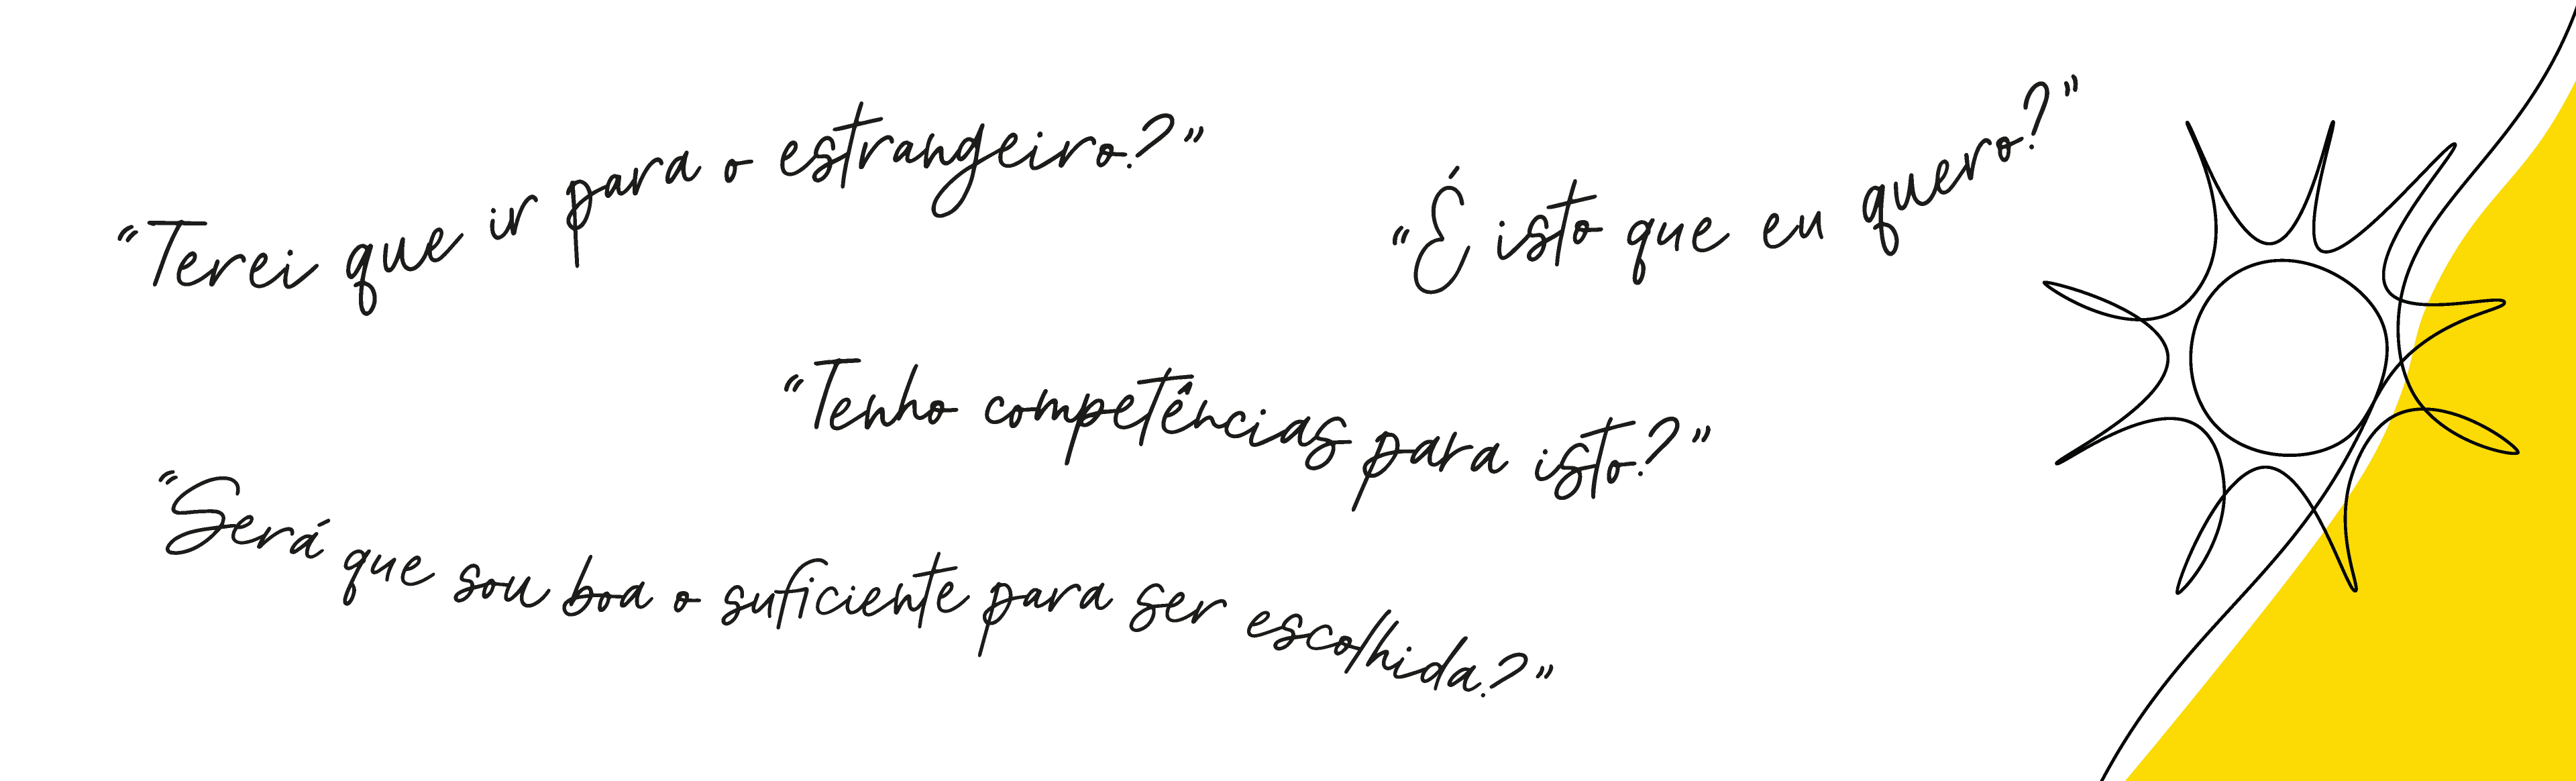 “Terei que ir para o estrangeiro?”
“É isto que eu quero?”
“Tenho competências para isto?”
“Será que sou boa o suficiente para ser escolhida?”